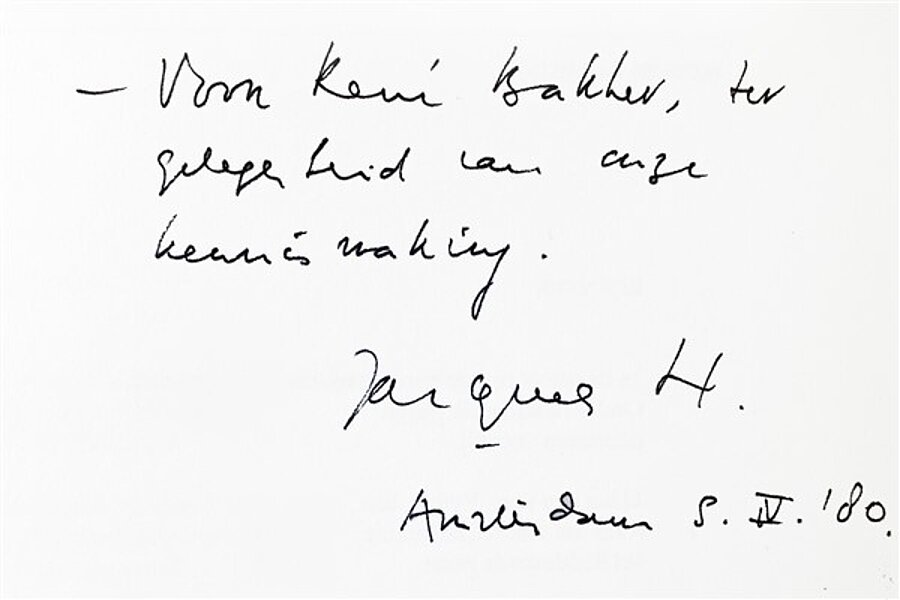 – Voor René Bakker, ter
gelegenheid van onze
kennismaking.
Jacques H.
Amsterdam 5. IV. '80.